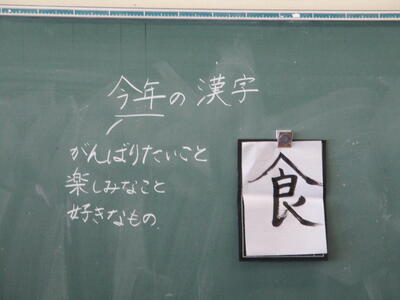 今年の漢字
がんばりたいこと
楽しみなこと
好きなもの
食